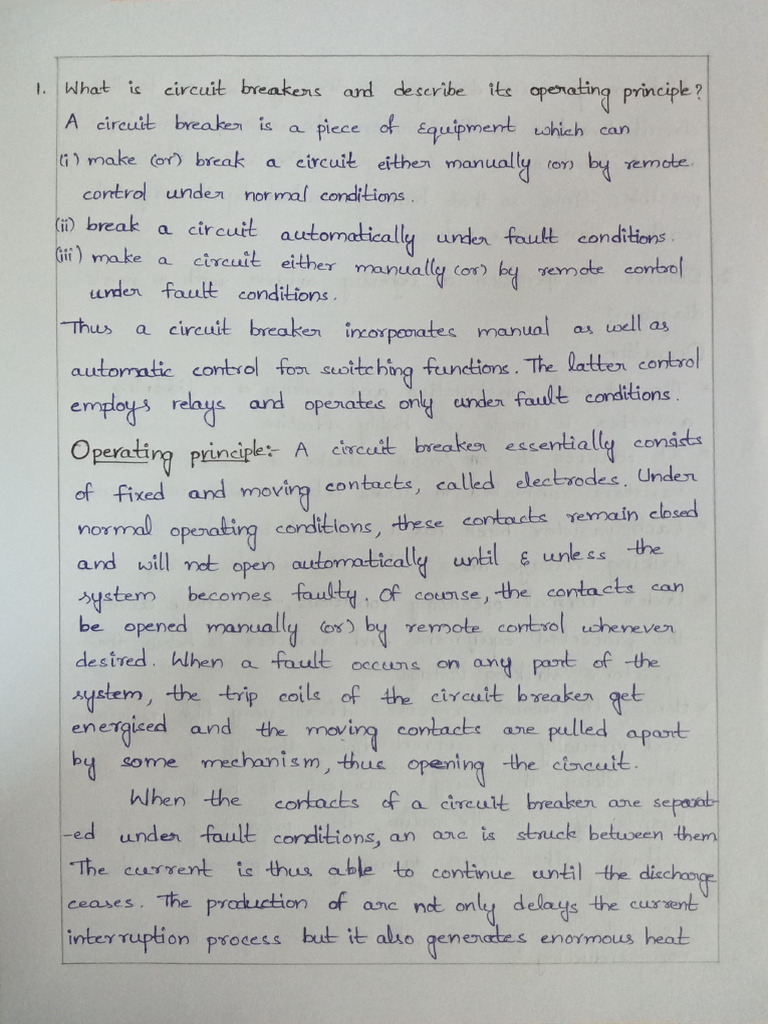 1. What is circuit breakers and describe its operating principle?
A circuit breaker is a piece of Equipment which can
(i) make (or) break a circuit either manually (or) by remote
control under normal conditions.
(ii) break a circuit automatically under fault conditions.
(iii) make a circuit either manually (or) by remote control
under fault conditions.
Thus a circuit breaker incorporates manual as well as
automatic control for switching functions. The latter control
employs relays and operates only under fault conditions.
Operating principle:- A circuit breaker essentially consists
of fixed and moving contacts, called electrodes. Under
normal operating conditions, these contacts remain closed
and will not open automatically until & unless the
system becomes faulty. Of course, the contacts can
be opened manually (or) by remote control whenever
desired. When a fault occurs on any part of the
system, the trip coils of the circuit breaker get
energised and the moving contacts are pulled apart
by some mechanism, thus opening the circuit.
When the contacts of a circuit breaker are separat-
-ed under fault conditions, an arc is struck between them
The current is thus able to continue until the discharge
ceases. The production of arc not only delays the current
interruption process but it also generates enormous heat